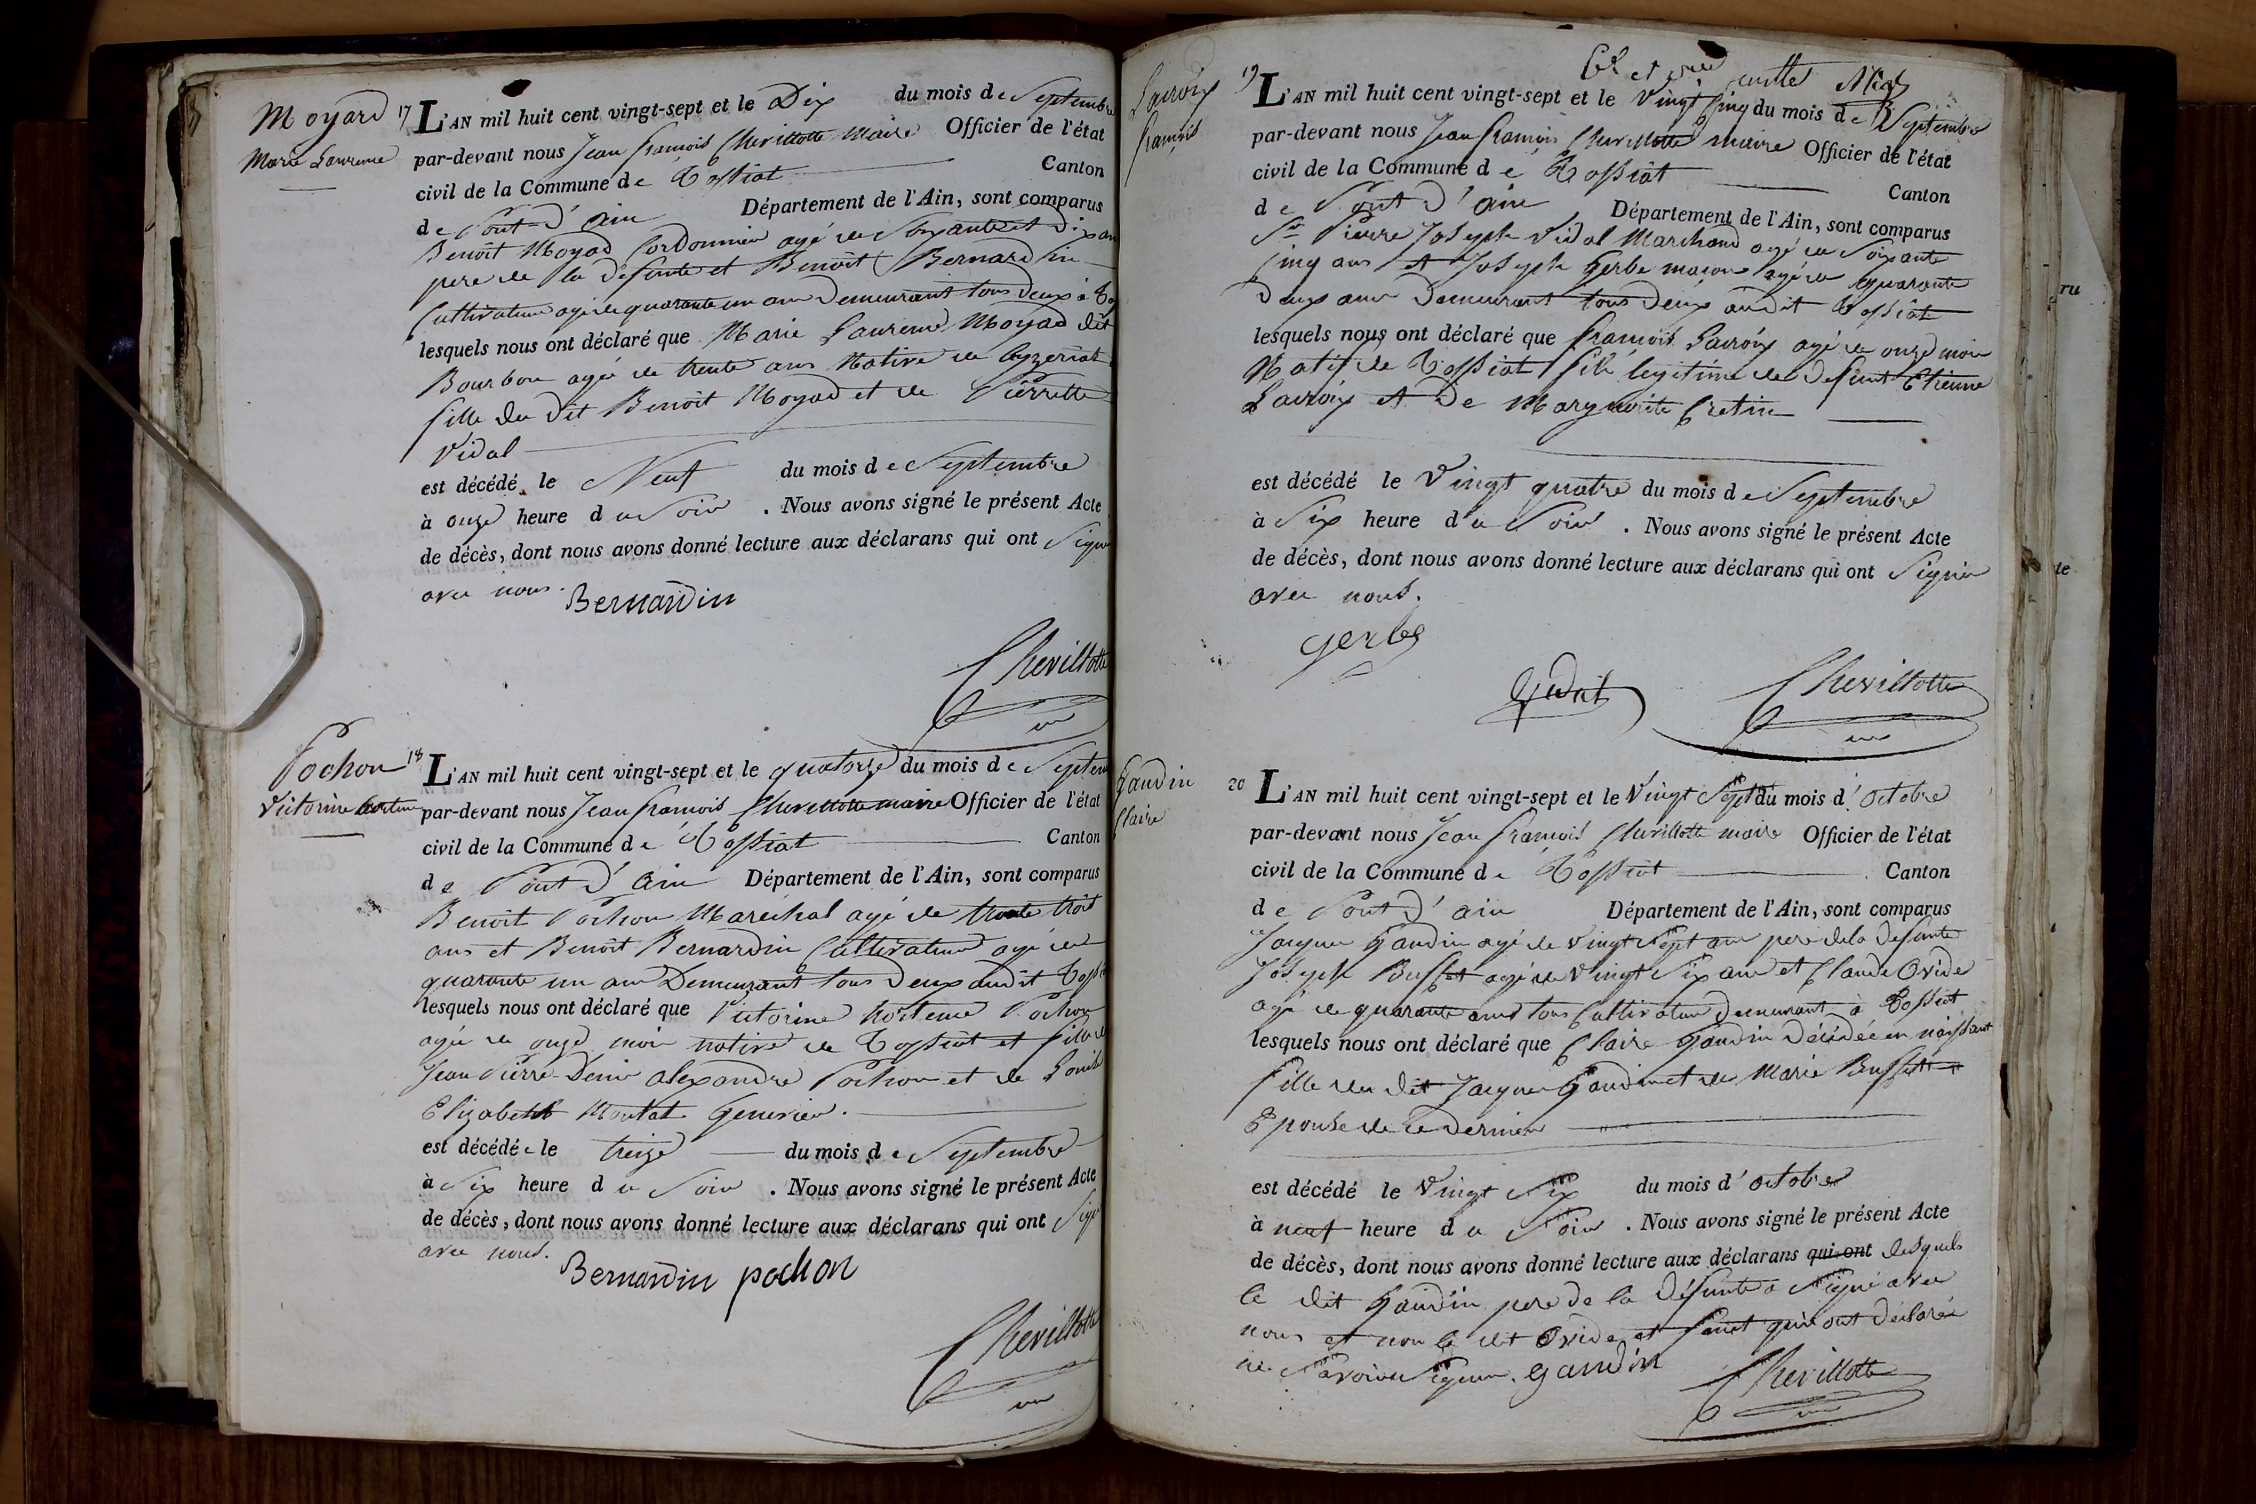 Moyard
Marie Laurence
17 L'AN mil huit cent vingt-sept et le Dix du mois de Septembre
par-devant nous Jean francois Chevillotte maire Officier de l'état
civil de la Commune de Tossiat Canton
de Pont d'ain Département de l'Ain, sont comparus
Benoit Moyad Cordonnier agé de Soixante et Dix ans
pere de la defunte et Benoit Bernardin
Cultivateur agé de quarante un ans Demeurant tous deux à
lesquels nous ont déclaré que Marie Laurence Moyad dit
Bourbon agée de trente ans Native de Ceyzeriat
fille du dit Benoit Moyad et de Pierrette
Vidal
est décédé le Neuf du mois de Septembre
à onze heure du Soir . Nous avons signé le présent Acte
de décès, dont nous avons donné lecture aux déclarans qui ont Signé
avec nous.
Bernardin
Chevillotte
Pochon
Victorine hortense
18 L'AN mil huit cent vingt-sept et le quatorze du mois de Septem
par-devant nous Jean francois Chevillotte maire Officier de l'état
civil de la Commune de Tossiat Canton
de Pont d'ain Département de l'Ain, sont comparus
Benoit Pochon Maréchal agé de trente trois
ans et Benoit Bernardin Cultivateur agé de
quarante un ans Demeurant tous Deux audit Toss
lesquels nous ont déclaré que Victorine hortense Pochon
agée de onze mois native de Tossiat et fille de
Jean Pierre Denis alexandre Pochon et de Louise
Elizabeth Montat
est décédée le treize du mois de Septembre
à Six heure du Soir . Nous avons signé le présent Acte
de décès, dont nous avons donné lecture aux déclarans qui ont Sig
avec nous.
Bernardin pochon
Chevillotte
Lacroix
francois
19 L'AN mil huit cent vingt-sept et le vingt cinq du mois de Septembre
par-devant nous Jean francois Chevillotte maire Officier de l'état
civil de la Commune de Tossiat Canton
de Pont d'ain Département de l'Ain, sont comparus
Sr Pierre Joseph Vidal Marchand agé de Soixante
cinq ans et Joseph Gerbe macon agé de quarante
Deux ans Demeurant tous Deux audit Tossiat
lesquels nous ont déclaré que francois Lacroix agé de onze mois
Natif de Tossiat fils legitime de defunt Etienne
Lacroix et De Marguerite Cretin
est décédé le Vingt quatre du mois de Septembre
à Six heure du Soir . Nous avons signé le présent Acte
de décès, dont nous avons donné lecture aux déclarans qui ont Signé
avec nous.
gerbe
Vidal
Chevillotte
Gaudin
Claire
20 L'AN mil huit cent vingt-sept et le Vingt Sept du mois d'octobre
par-devant nous Jean francois Chevillotte maire Officier de l'état
civil de la Commune de Tossiat Canton
de Pont d'ain Département de l'Ain, sont comparus
Jacques Gaudin agé de Vingt Sept ans pere dela Defunte
Joseph Buffet agé de Vingt Six ans et Claude Ovide
agé de quarante ans tous Cultivateurs Demeurant à Tossiat
lesquels nous ont déclaré que Claire Gaudin Décédée en naissant
fille du dit Jacques Gaudin et de Marie Buffet
Epouse de ce Dernier
est décédé le Vingt Six du mois d'octobre
à neuf heure du Soir . Nous avons signé le présent Acte
de décès, dont nous avons donné lecture aux déclarans qui ont desquels
le dit Gaudin pere de la Défunte a Signé avec
nous et non le dit Ovide et qui ont déclaré
ne Savoir Signer. gaudin
Chevillotte